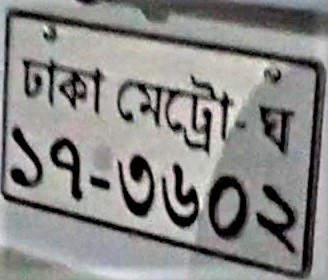 ঢাকা মেট্রো-ঘ
১৭-৩৬০২